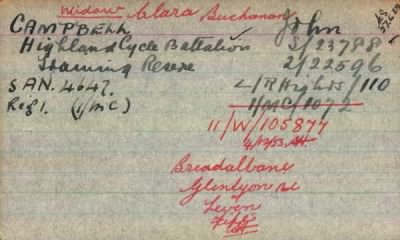 Widow Clara Buchanan
CAMPBELL John
Highland Cycle Battalion 3/23788
Training Reserve 2/22596
SAN. 4647. L/R Highrs/110
Regt. (1/MC) 1/MC/1072
11/W/105877
4/12/53
Breadalbane
Glenlyon Rd
Leven
Fife